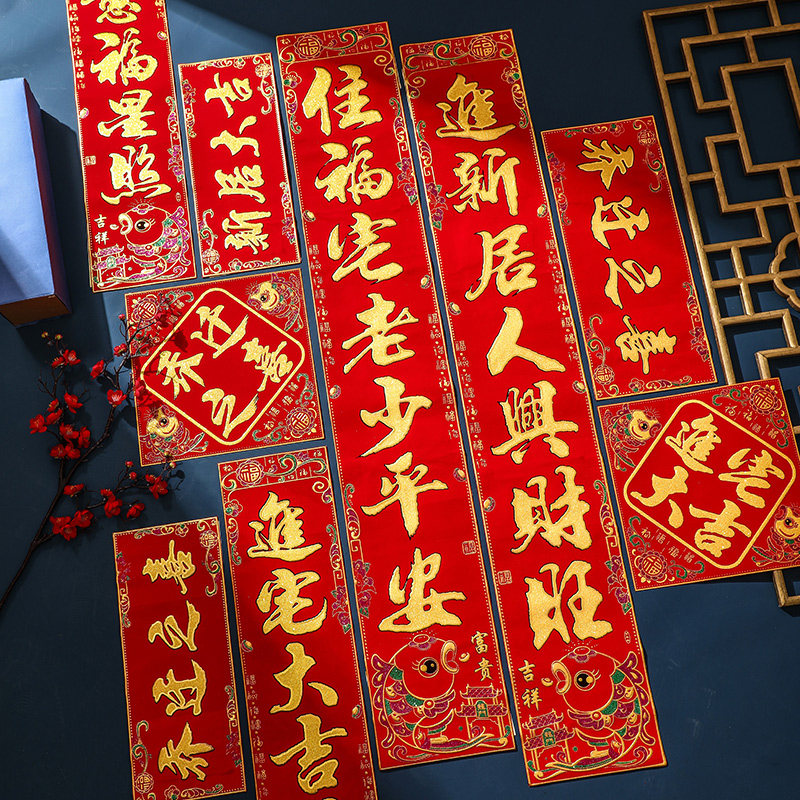 福星照
吉祥
新居大吉
住福宅老少平安
富貴
進新居人興財旺
吉祥
乔迁之喜
乔迁之喜
進宅大吉
乔迁之喜
進宅大吉